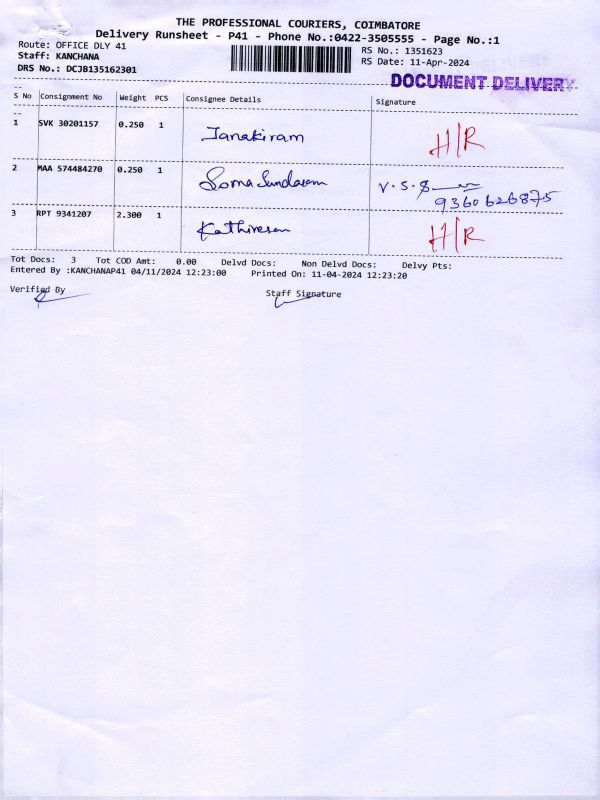 THE PROFESSIONAL COURIERS, COIMBATORE
Delivery Runsheet - P41 - Phone No.:0422-3505555 - Page No.:1
Route: OFFICE DLY 41 RS No.: 1351623
Staff: KANCHANA RS Date: 11-Apr-2024
DRS No.: DCJB135162301
DOCUMENT DELIVERY
S No Consignment No Weight PCS Consignee Details Signature
1 SVK 30201157 0.250 1 Janakiram H/R
2 MAA 574484270 0.250 1 Soma Sundaram V.S.S
9360626875
3 RPT 9341207 2.300 1 Kathiresan H/R
Tot Docs: 3 Tot COD Amt: 0.00 Delvd Docs: Non Delvd Docs: Delvy Pts:
Entered By :KANCHANAP41 04/11/2024 12:23:00 Printed On: 11-04-2024 12:23:20
Verified By Staff Signature